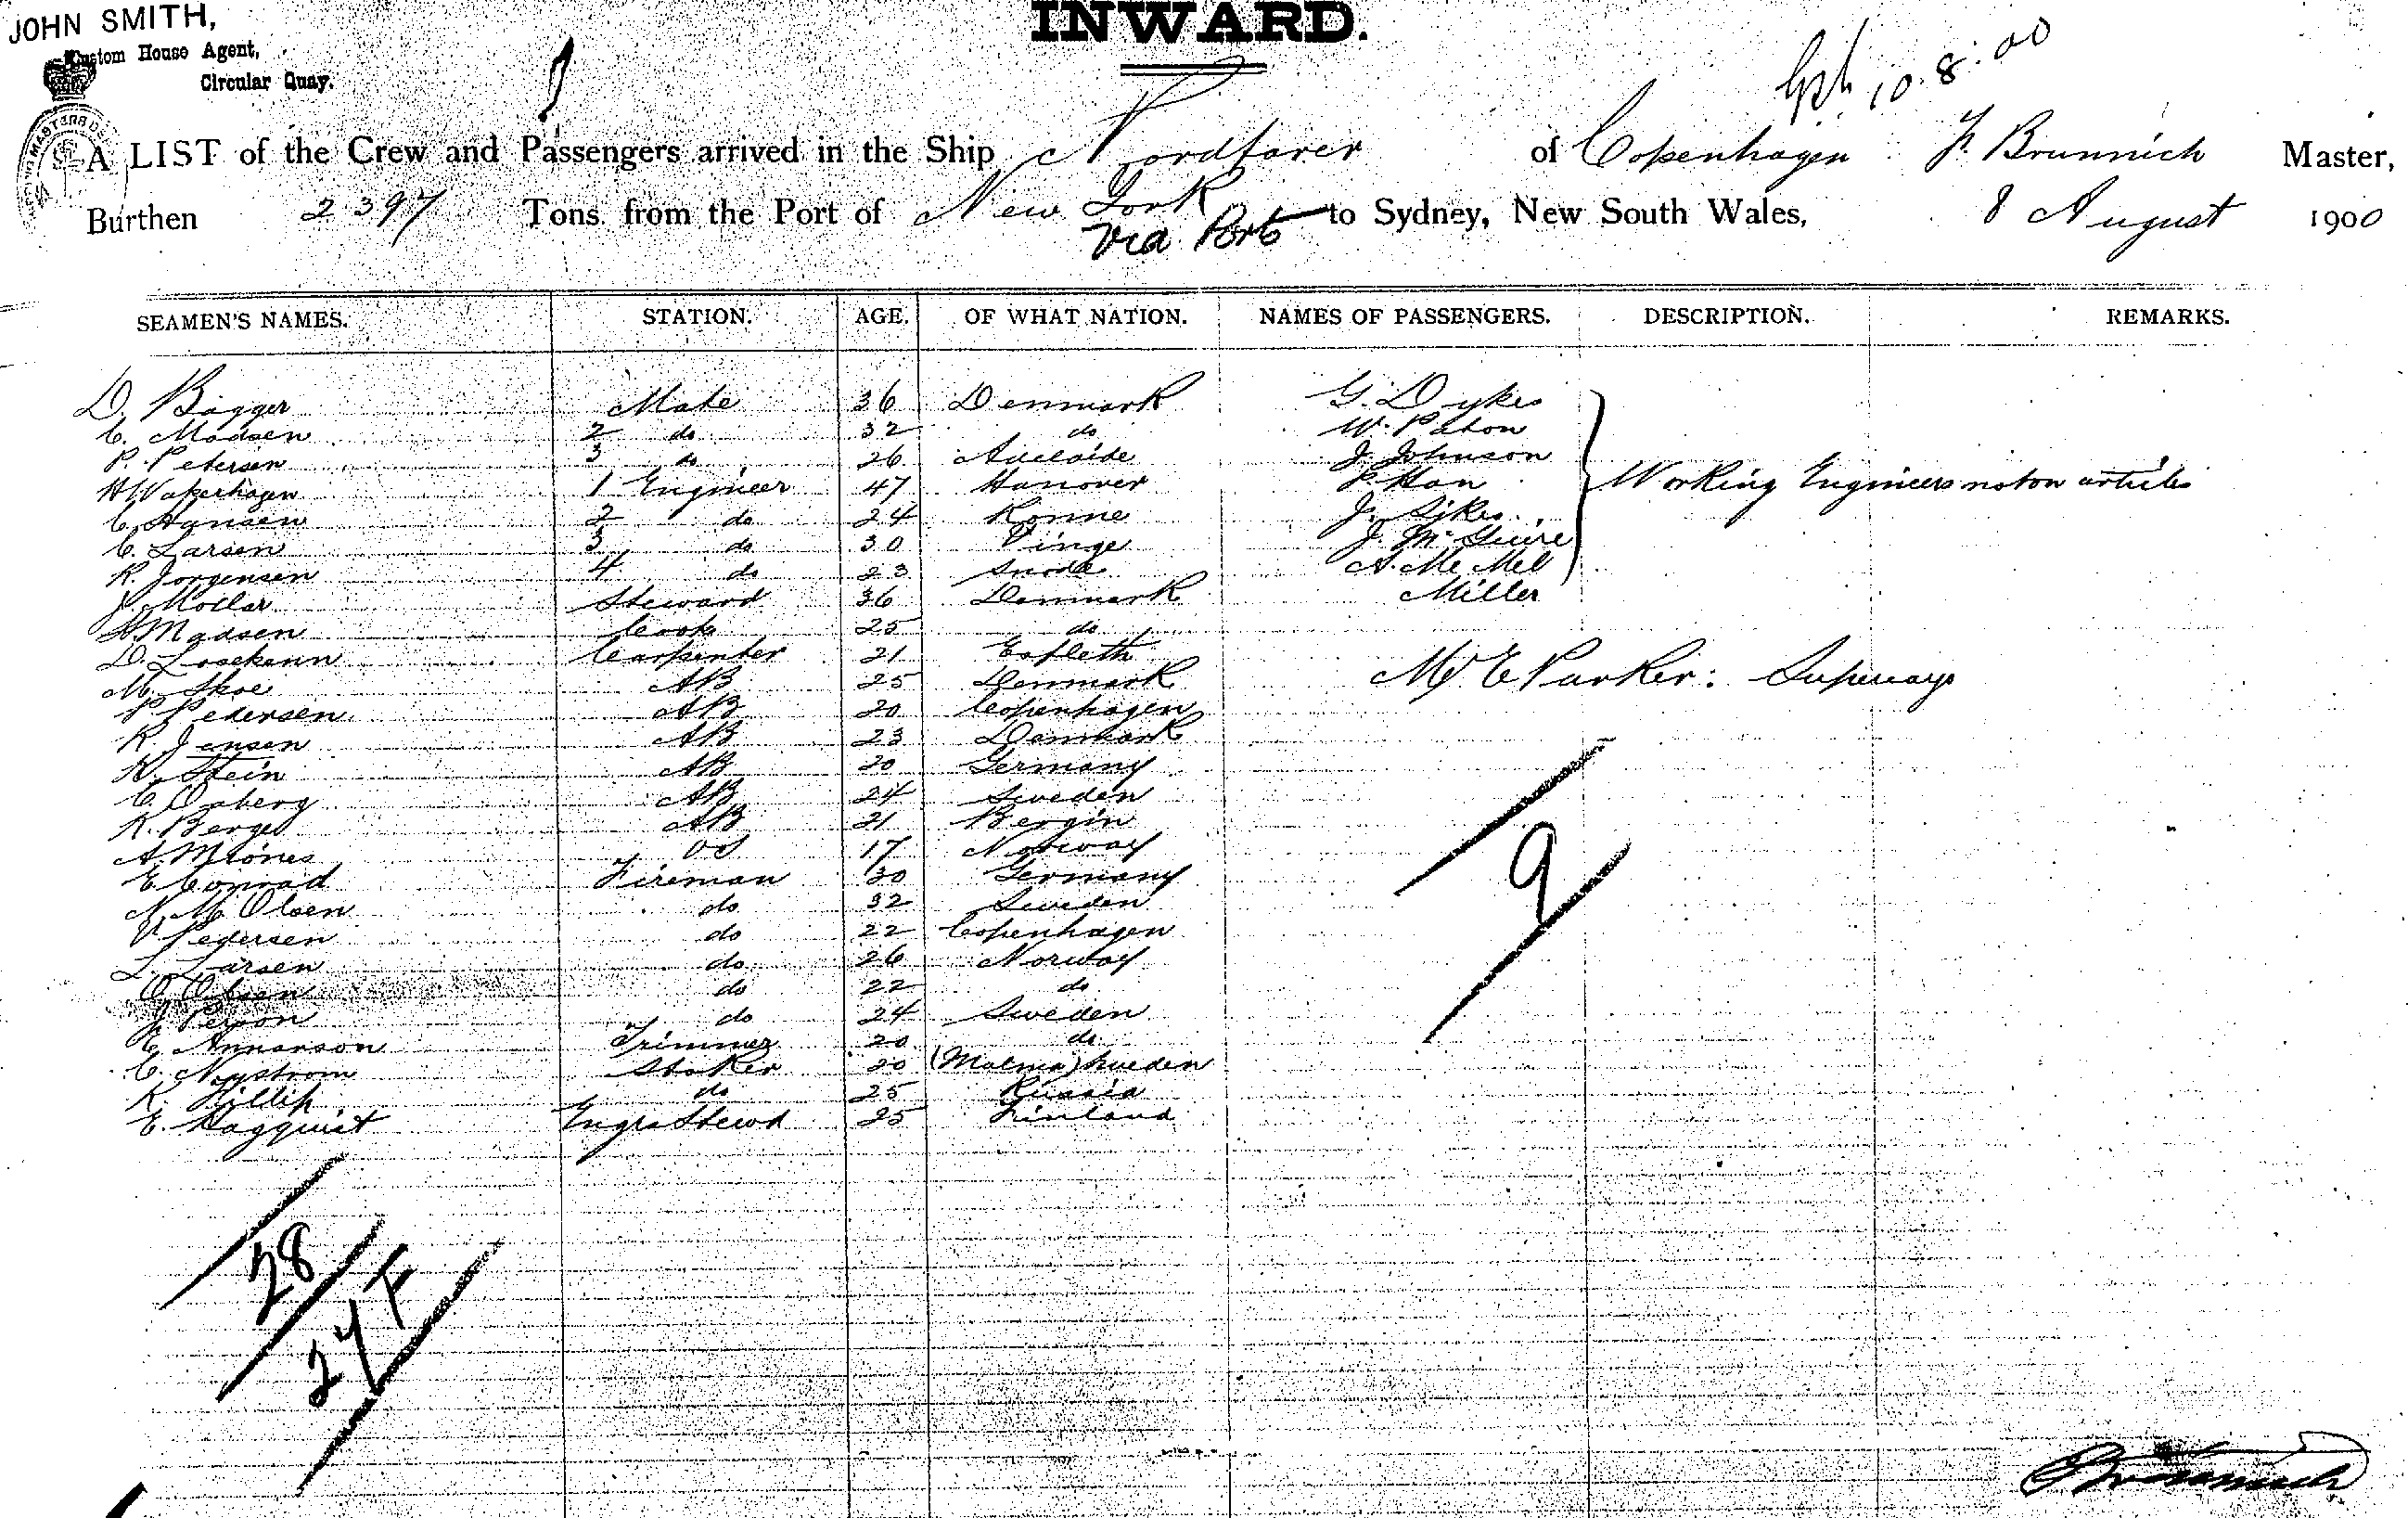 JOHN SMITH,
Custom House Agent,
Circular Quay.
INWARD.
10.8.00
A LIST of the Crew and Passengers arrived in the Ship Nordfarer of Copenhagen F. Brunnich Master,
Burthen 2397 Tons from the Port of New York to Sydney, New South Wales, 8 August 1900
via Ports
SEAMEN'S NAMES. STATION. AGE. OF WHAT NATION. NAMES OF PASSENGERS. DESCRIPTION. REMARKS.
D. Bagger Mate 36 Denmark G. Dykes
C. Madsen 2 do 32 do W. Paton
P. Petersen 3 do 26 Adelaide J. Johnson
H Wakerhagen 1 Engineer 47 Hanover P Han Working Engineers not on articles
C. Hansen 2 do 24 Ronne J. Sikes
C. Larsen 3 do 30 Vinge J. McGuire
R. Jorgensen 4 do 23 Snode A. Mc Mel
J. Moller Steward 36 Denmark Miller
H Madsen Cook 25 do
D. Losekann Carpenter 21 Esfleth
M. Skoe AB 25 Denmark Mr E Parker: Supercargo
P. Pedersen AB 20 Copenhagen
R. Jensen AB 23 Denmark
K. Stein AB 20 Germany
C. Oaberg AB 24 Sweden
K. Berge AB 21 Bergin
A. Mrones OS 17 Norway
E Conrad Fireman 30 Germany
N. M. Olsen do 32 Sweden
V Pedersen do 22 Copenhagen
L. Larsen do 26 Norway
O Olsen do 22 do
J. Person do 24 Sweden
E Annanson Trimmer 20 do
C. Nystrom Stoker 20 (Malmo) Sweden
K. Fillip do 25 Russia
E. Hagquist Engrs Stewd 25 Finland
9
28
27 F
Brunnich